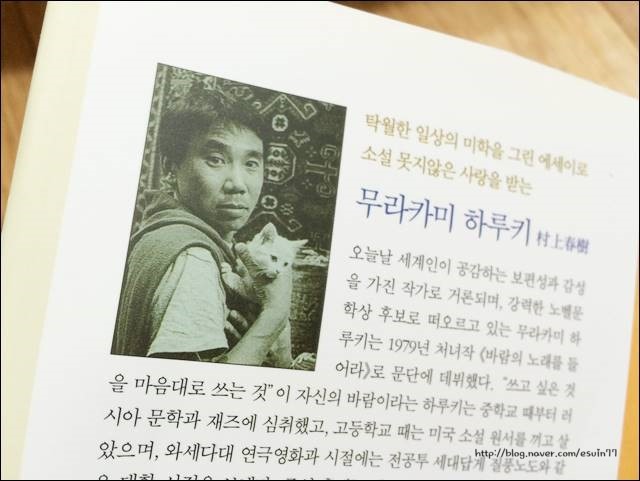 탁월한 일상의 미학을 그린 에세이로
소설 못지않은 사랑을 받는
무라카미 하루키 村上春樹
오늘날 세계인이 공감하는 보편성과 감성
을 가진 작가로 거론되며, 강력한 노벨문
학상 후보로 떠오르고 있는 무라카미 하
루키는 1979년 처녀작 《바람의 노래를 들
어라》로 문단에 데뷔했다. “쓰고 싶은 것
을 마음대로 쓰는 것”이 자신의 바람이라는 하루키는 중학교 때부터 러
시아 문학과 재즈에 심취했고, 고등학교 때는 미국 소설 원서를 끼고 살
았으며, 와세다대 연극영화과 시절에는 전공투 세대답게 질풍노도와 같
http://blog.naver.com/esuin77